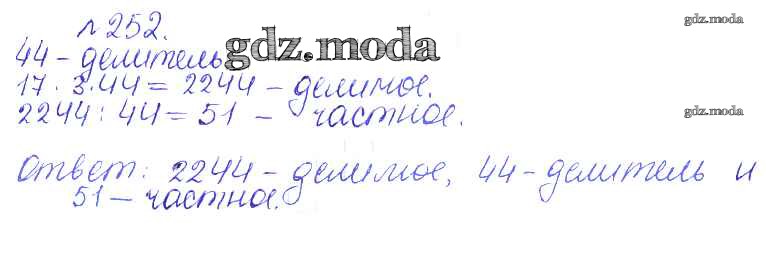 №252.
gdz.moda
44 - делитель
gdz.moda
17 · 3 · 44 = 2244 - делимое.
2244 : 44 = 51 - частное.
gdz.moda
Ответ: 2244 - делимое, 44 - делитель и
51 - частное.